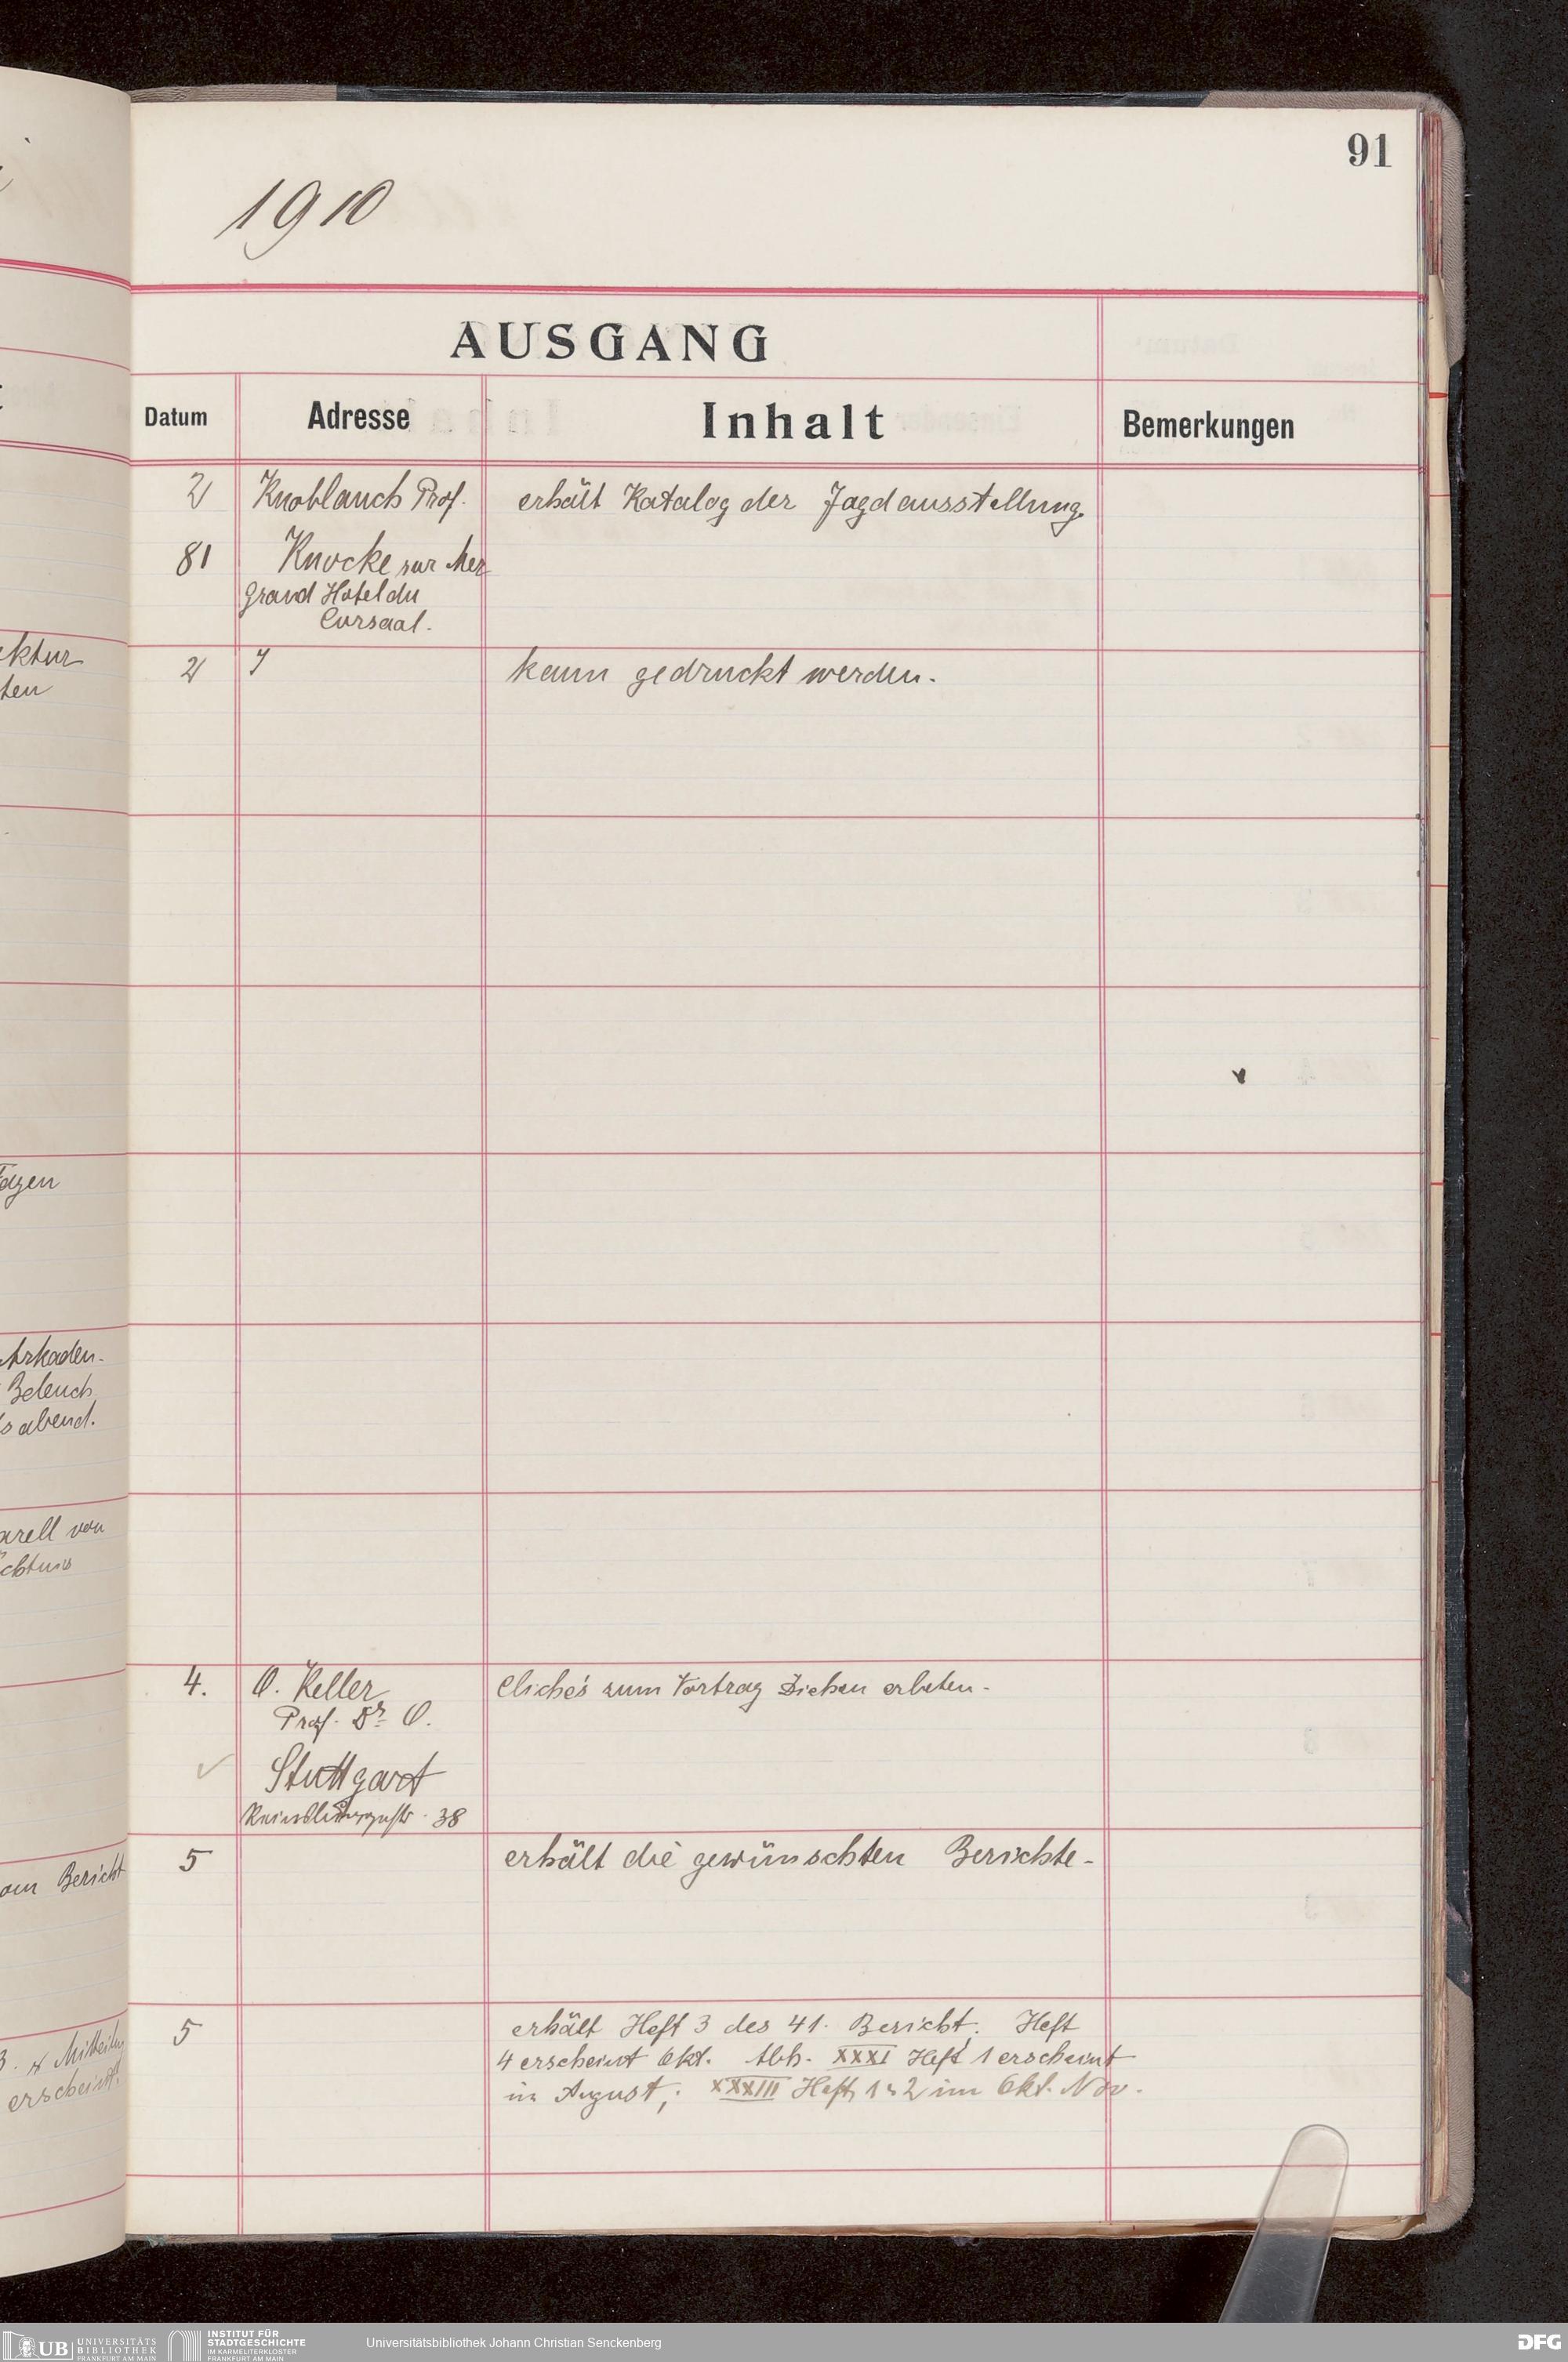 91
1910
AUSGANG
Datum Adresse Inhalt Bemerkungen
2 Knoblauch Prof. erhält Katalog der Jagdausstellung
81 Knocke sur Mer
Grand Hotel du
Cursaal.
2 kann gedruckt werden.
4. O. Keller Clichés zum Vortrag Ziehen erbeten.
Prof. Dr. O.
Stuttgart
38
5 erhält die gewünschten Berichte.
5 erhält Heft 3 des 41. Bericht; Heft
4 erscheint Okt. Abh. XXXI Heft 1 erscheint
im August; XXXIII Heft 1 u 2 im Okt. Nov.
ektur
ten
Arkaden-
Beleuch
abend.
arell von
om Bericht
3. Mitteilung
erscheint.
UB UNIVERSITÄTS
BIBLIOTHEK
FRANKFURT AM MAIN
INSTITUT FÜR
STADTGESCHICHTE
IM KARMELITERKLOSTER
FRANKFURT AM MAIN
Universitätsbibliothek Johann Christian Senckenberg
DFG